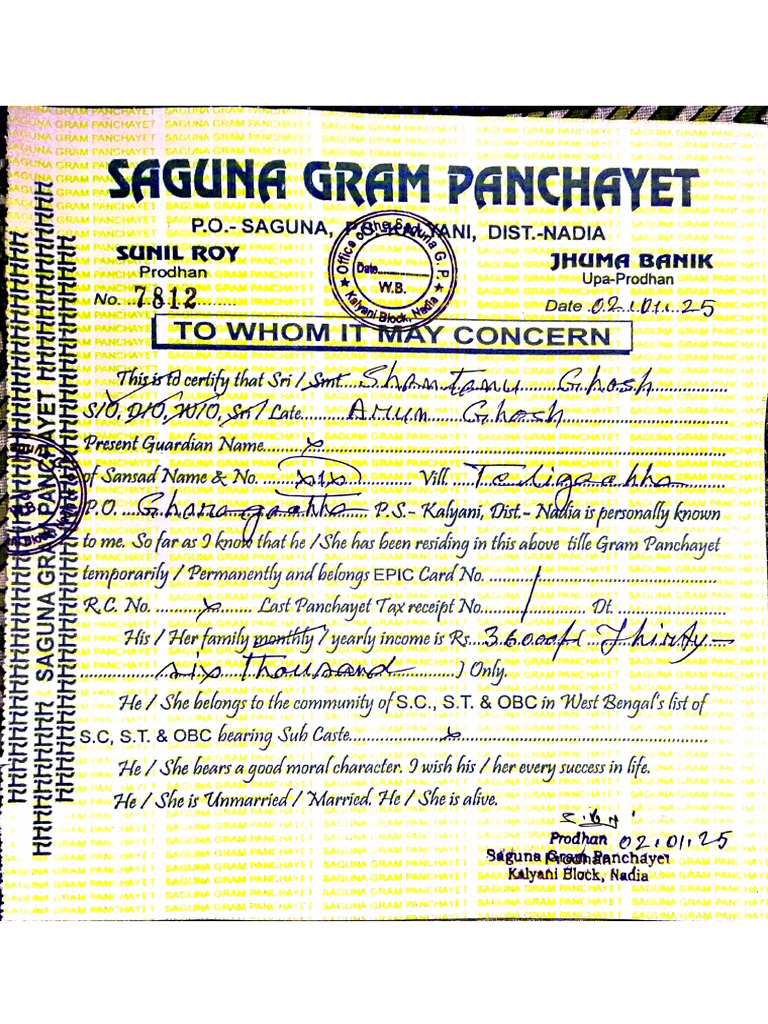 SAGUNA GRAM PANCHAYET
P.O.- SAGUNA, P.S.- KALYANI, DIST.-NADIA
SUNIL ROY
Prodhan
JHUMA BANIK
Upa-Prodhan
Office of the Saguna G.P.
Date
W.B.
Kalyani Block, Nadia
No. 7812
Date 02.01.25
TO WHOM IT MAY CONCERN
This is to certify that Sri / Smt. Shantanu Ghosh
S/O, D/O, W/O, Sri / Late Arun Ghosh
Present Guardian Name x
of Sansad Name & No. XIX Vill.
P.O. P.S.- Kalyani, Dist.- Nadia is personally known
to me. So far as I know that he / She has been residing in this above tille Gram Panchayet
temporarily / Permanently and belongs EPIC Card No. /
R.C. No. x Last Panchayet Tax receipt No. / Dt.
His / Her family monthly / yearly income is Rs. 36000/- Thirty-
six thousand ) Only.
He / She belongs to the community of S.C., S.T. & OBC in West Bengal's list of
S.C, S.T. & OBC bearing Sub Caste x
He / She bears a good moral character. I wish his / her every success in life.
He / She is Unmarried / Married. He / She is alive.
Prodhan 02.01.25
Saguna Gram Panchayet
Prodhan
Kalyani Block, Nadia
SAGUNA GRAM PANCHAYET